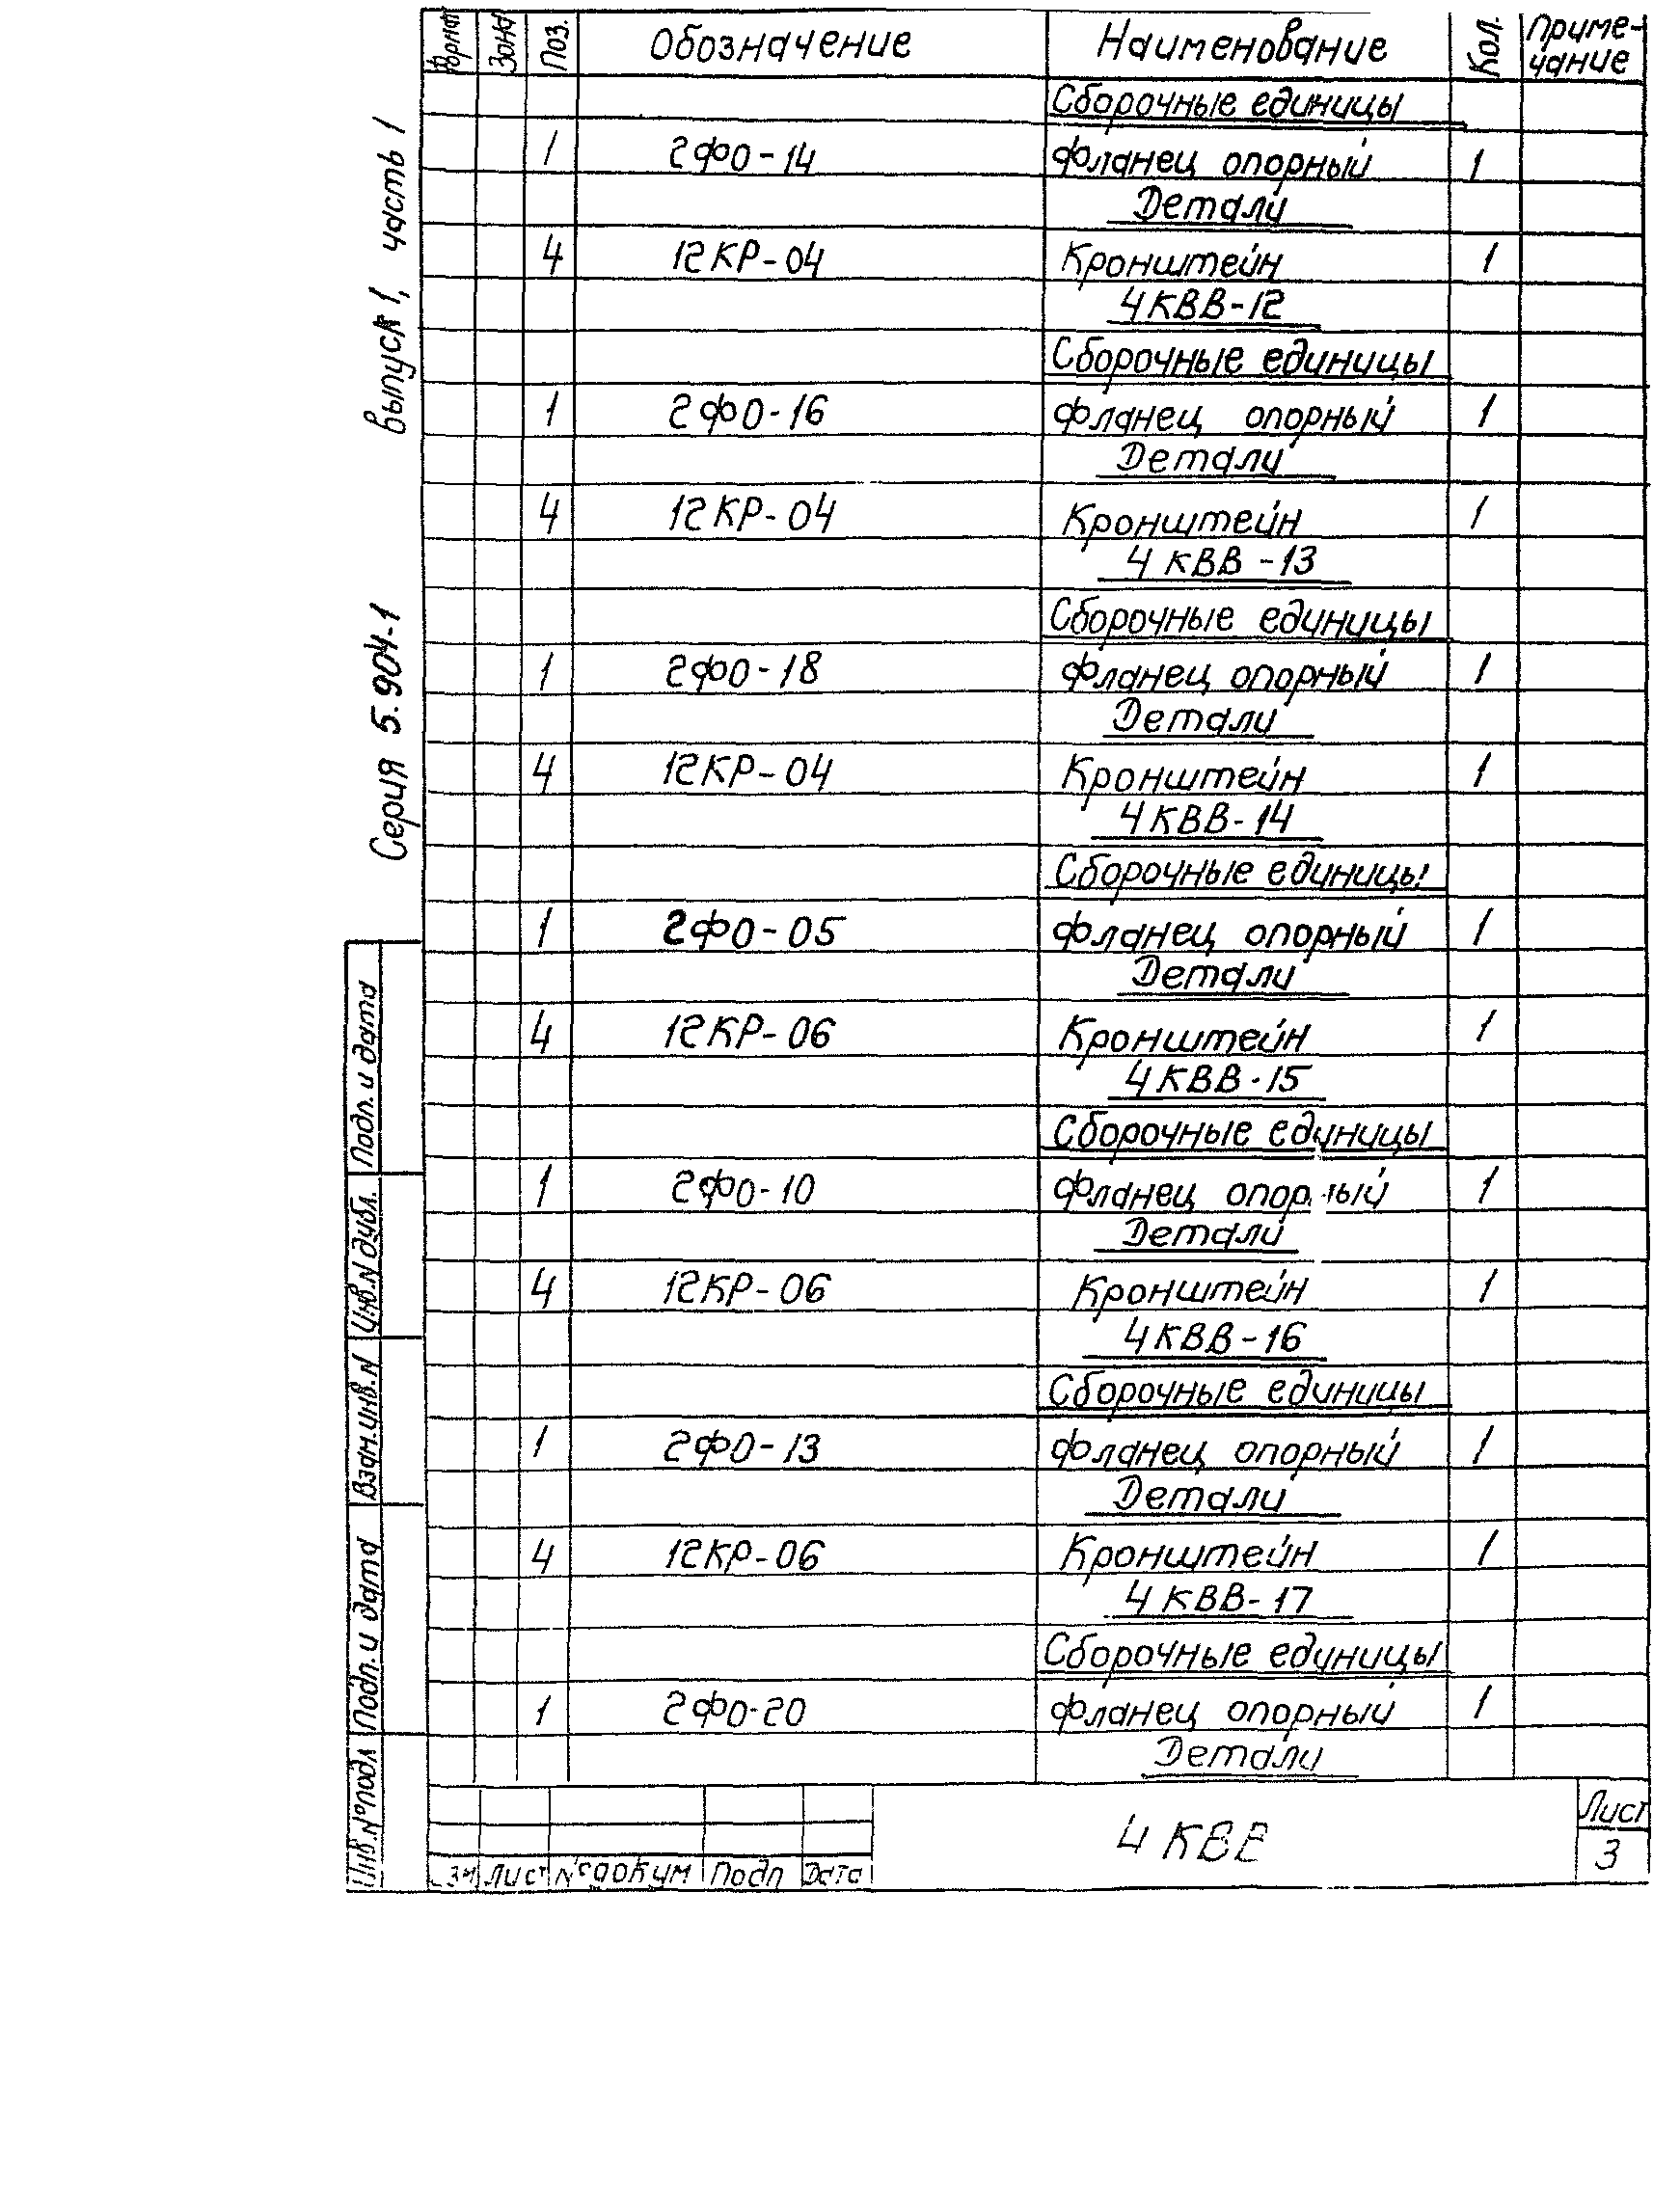 Формат Зона Поз. Обозначение Наименование Кол. Приме-
чание
Сборочные единицы
1 2ФО-14 Фланец опорный 1
Детали
4 12КР-04 Кронштейн 1
4КВВ-12
Сборочные единицы
1 2ФО-16 Фланец опорный 1
Детали
4 12КР-04 Кронштейн 1
4КВВ-13
Сборочные единицы
1 2ФО-18 Фланец опорный 1
Детали
4 12КР-04 Кронштейн 1
4КВВ-14
Сборочные единицы
1 2ФО-05 Фланец опорный 1
Детали
4 12КР-06 Кронштейн 1
4КВВ-15
Сборочные единицы
1 2ФО-10 Фланец опорный 1
Детали
4 12КР-06 Кронштейн 1
4КВВ-16
Сборочные единицы
1 2ФО-13 Фланец опорный 1
Детали
4 12КР-06 Кронштейн 1
4КВВ-17
Сборочные единицы
1 2ФО-20 Фланец опорный 1
Детали
Лист № докум Подп Дата
4КВВ
Лист
3
Серия 5.904-1 выпуск 1, часть 1
Подп. и дата
Инв. N дубл.
Взам. инв. N
Подп. и дата
Инв. № подл